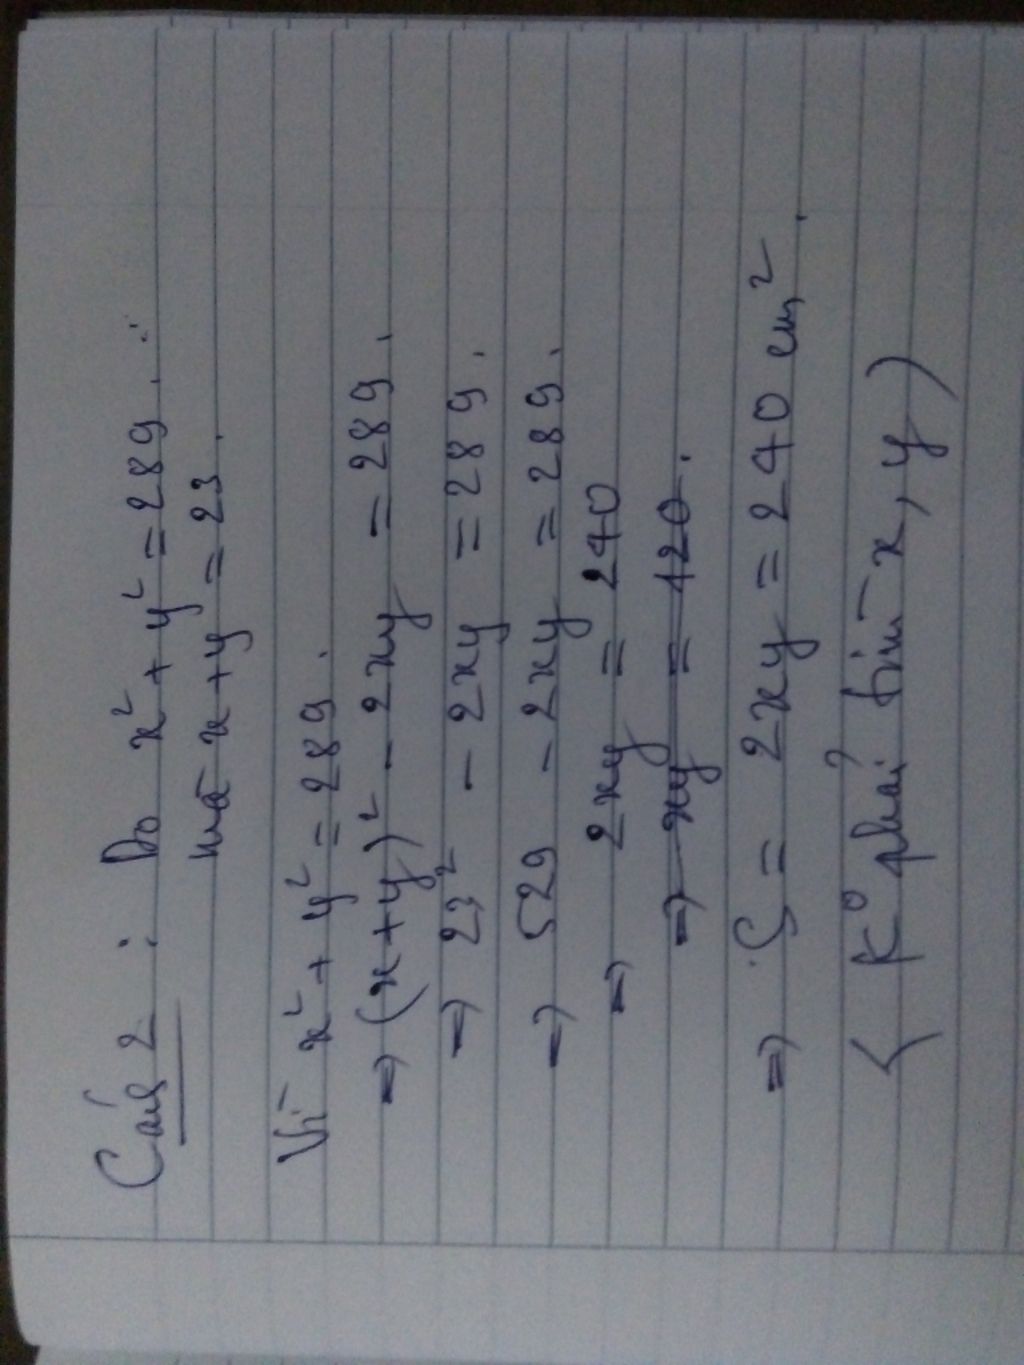 Cách 2 : Do x² + y² = 289.
mà x + y = 23.
Vì x² + y² = 289.
⇒ (x+y)² - 2xy = 289.
⇒ 23² - 2xy = 289.
⇒ 529 - 2xy = 289.
⇒ 2xy = 240
⇒ xy = 120.
⇒ S = 2xy = 240 cm².
( K° phải tìm x, y )